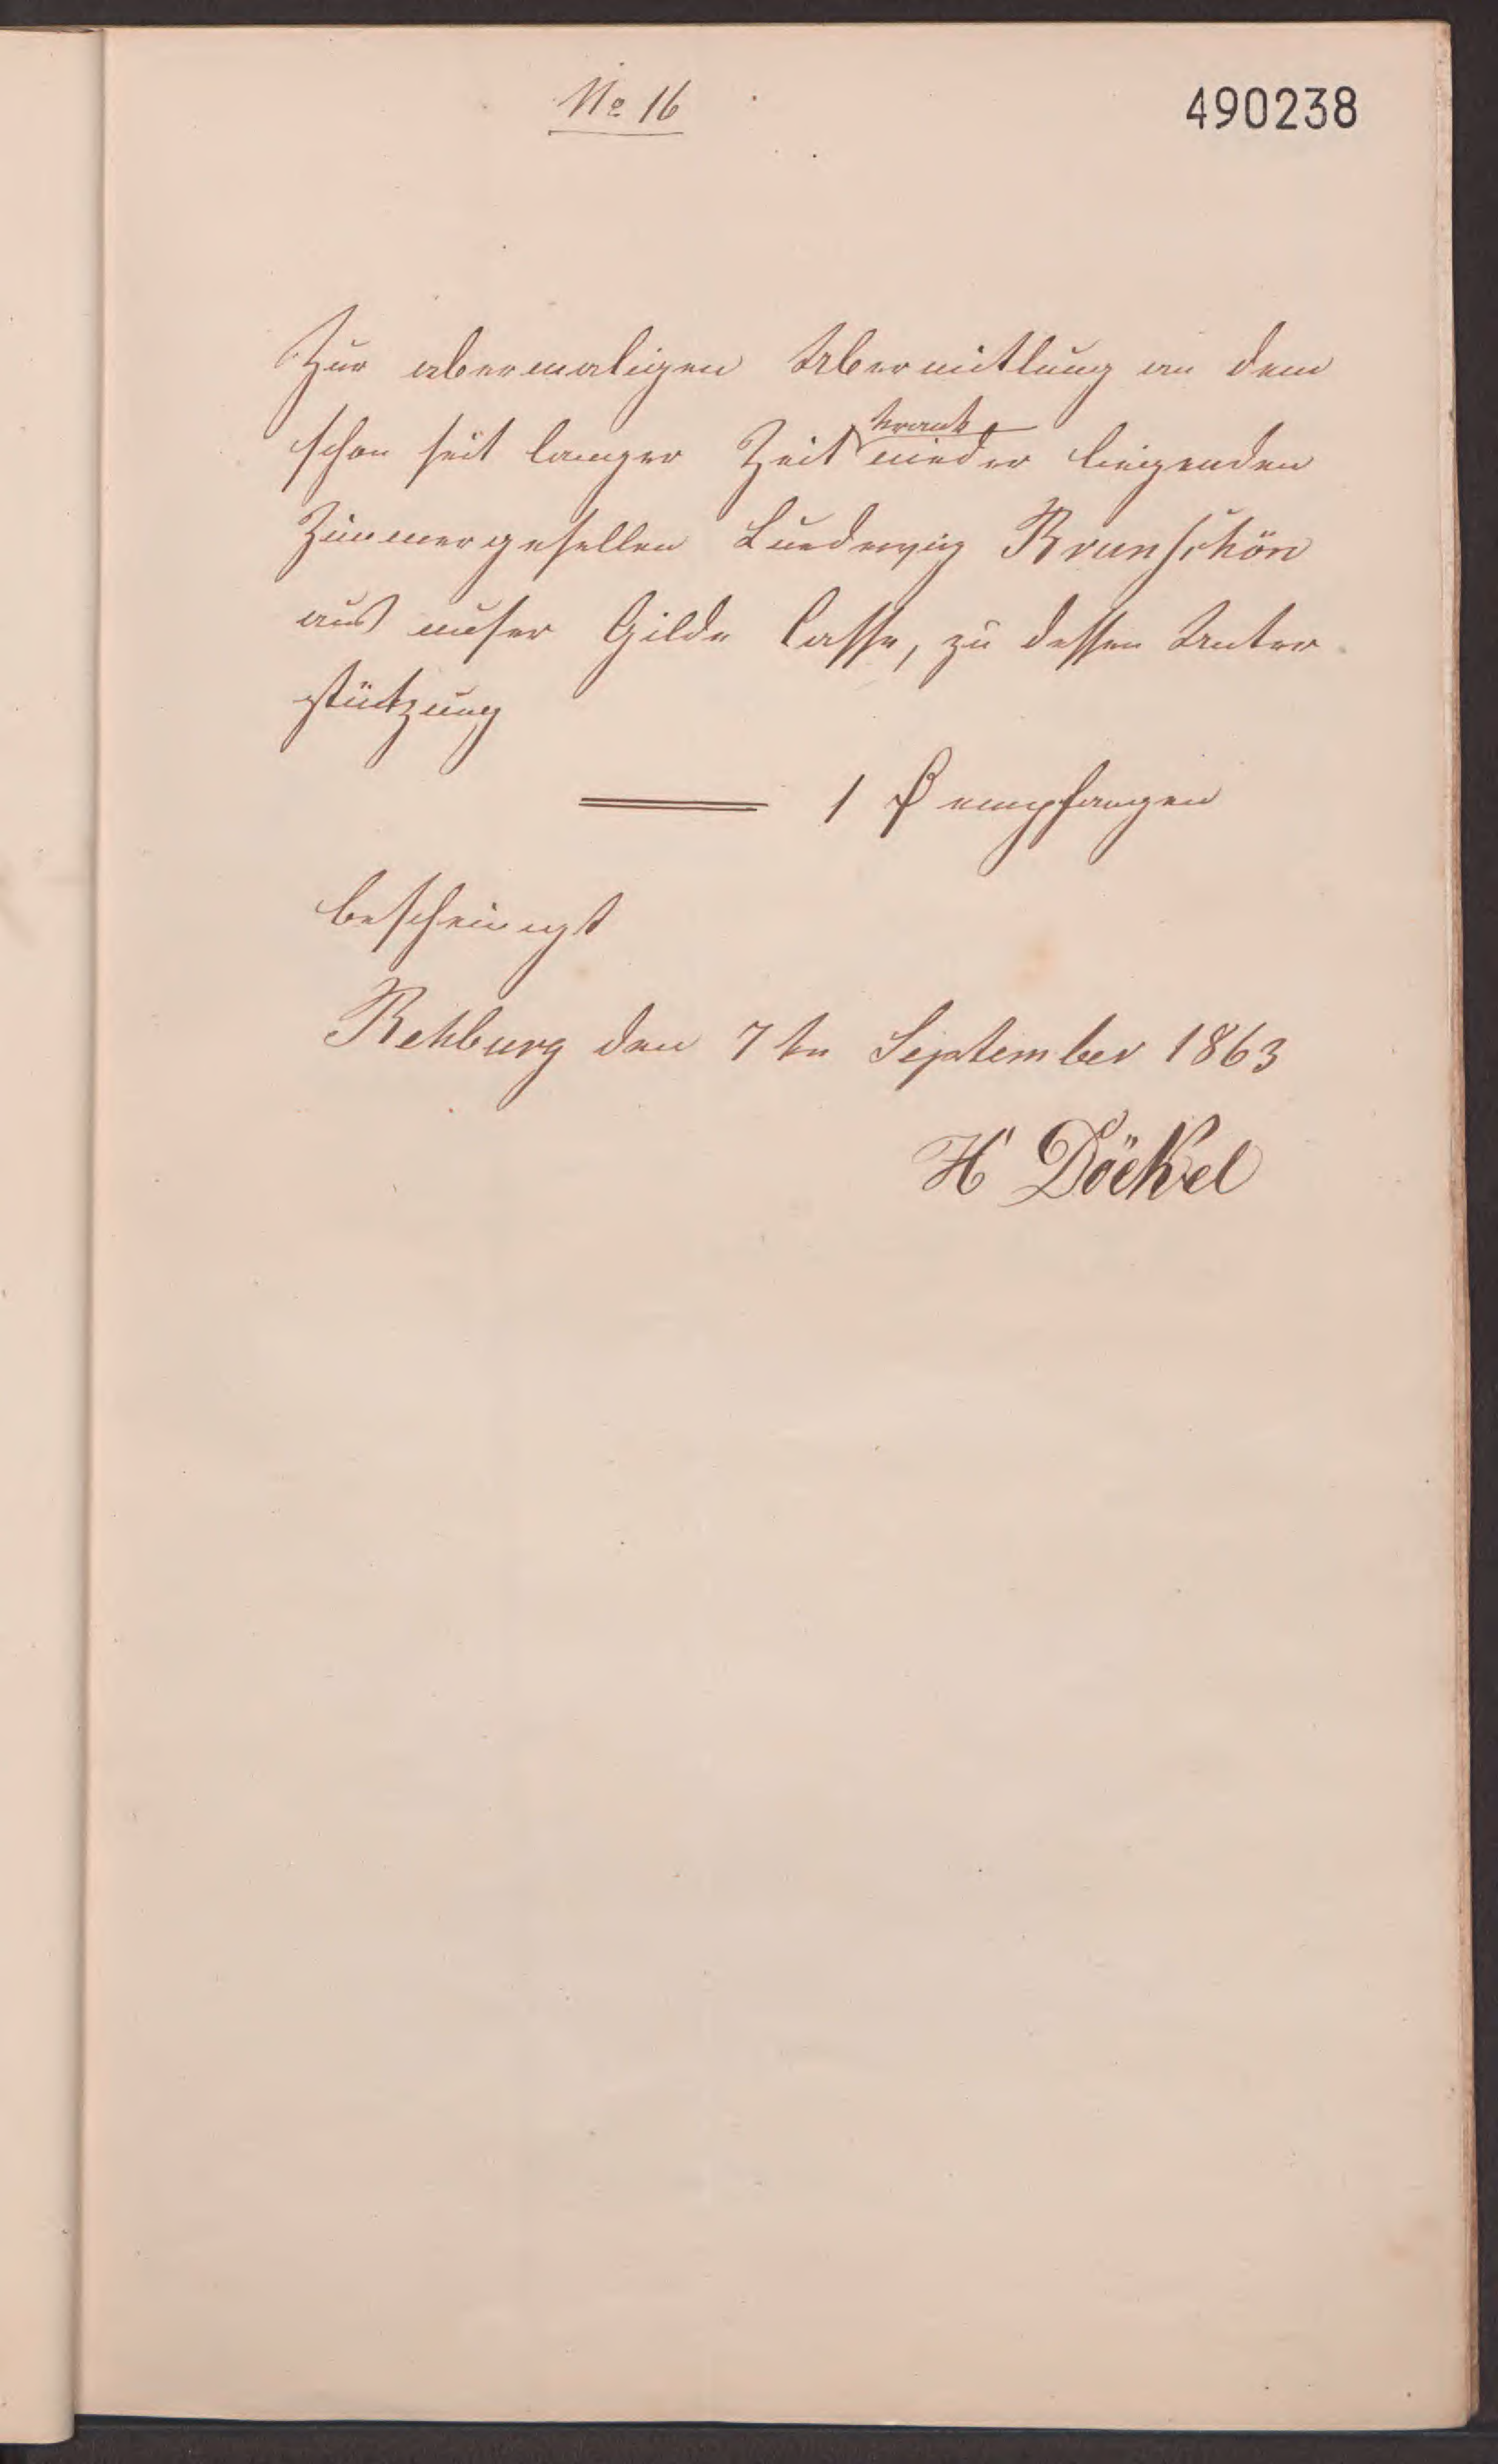 No 16
490238
Zur abermaligen Übermittlung an dem
schon seit langer Zeit krank nieder liegenden
Zimmergesellen Luedewig Brunschön
aus unser Gilde Casse, zu dessen Unter
stützung
1 empfangen
bescheinigt
Rehburg den 7ten September 1863
H Döckel